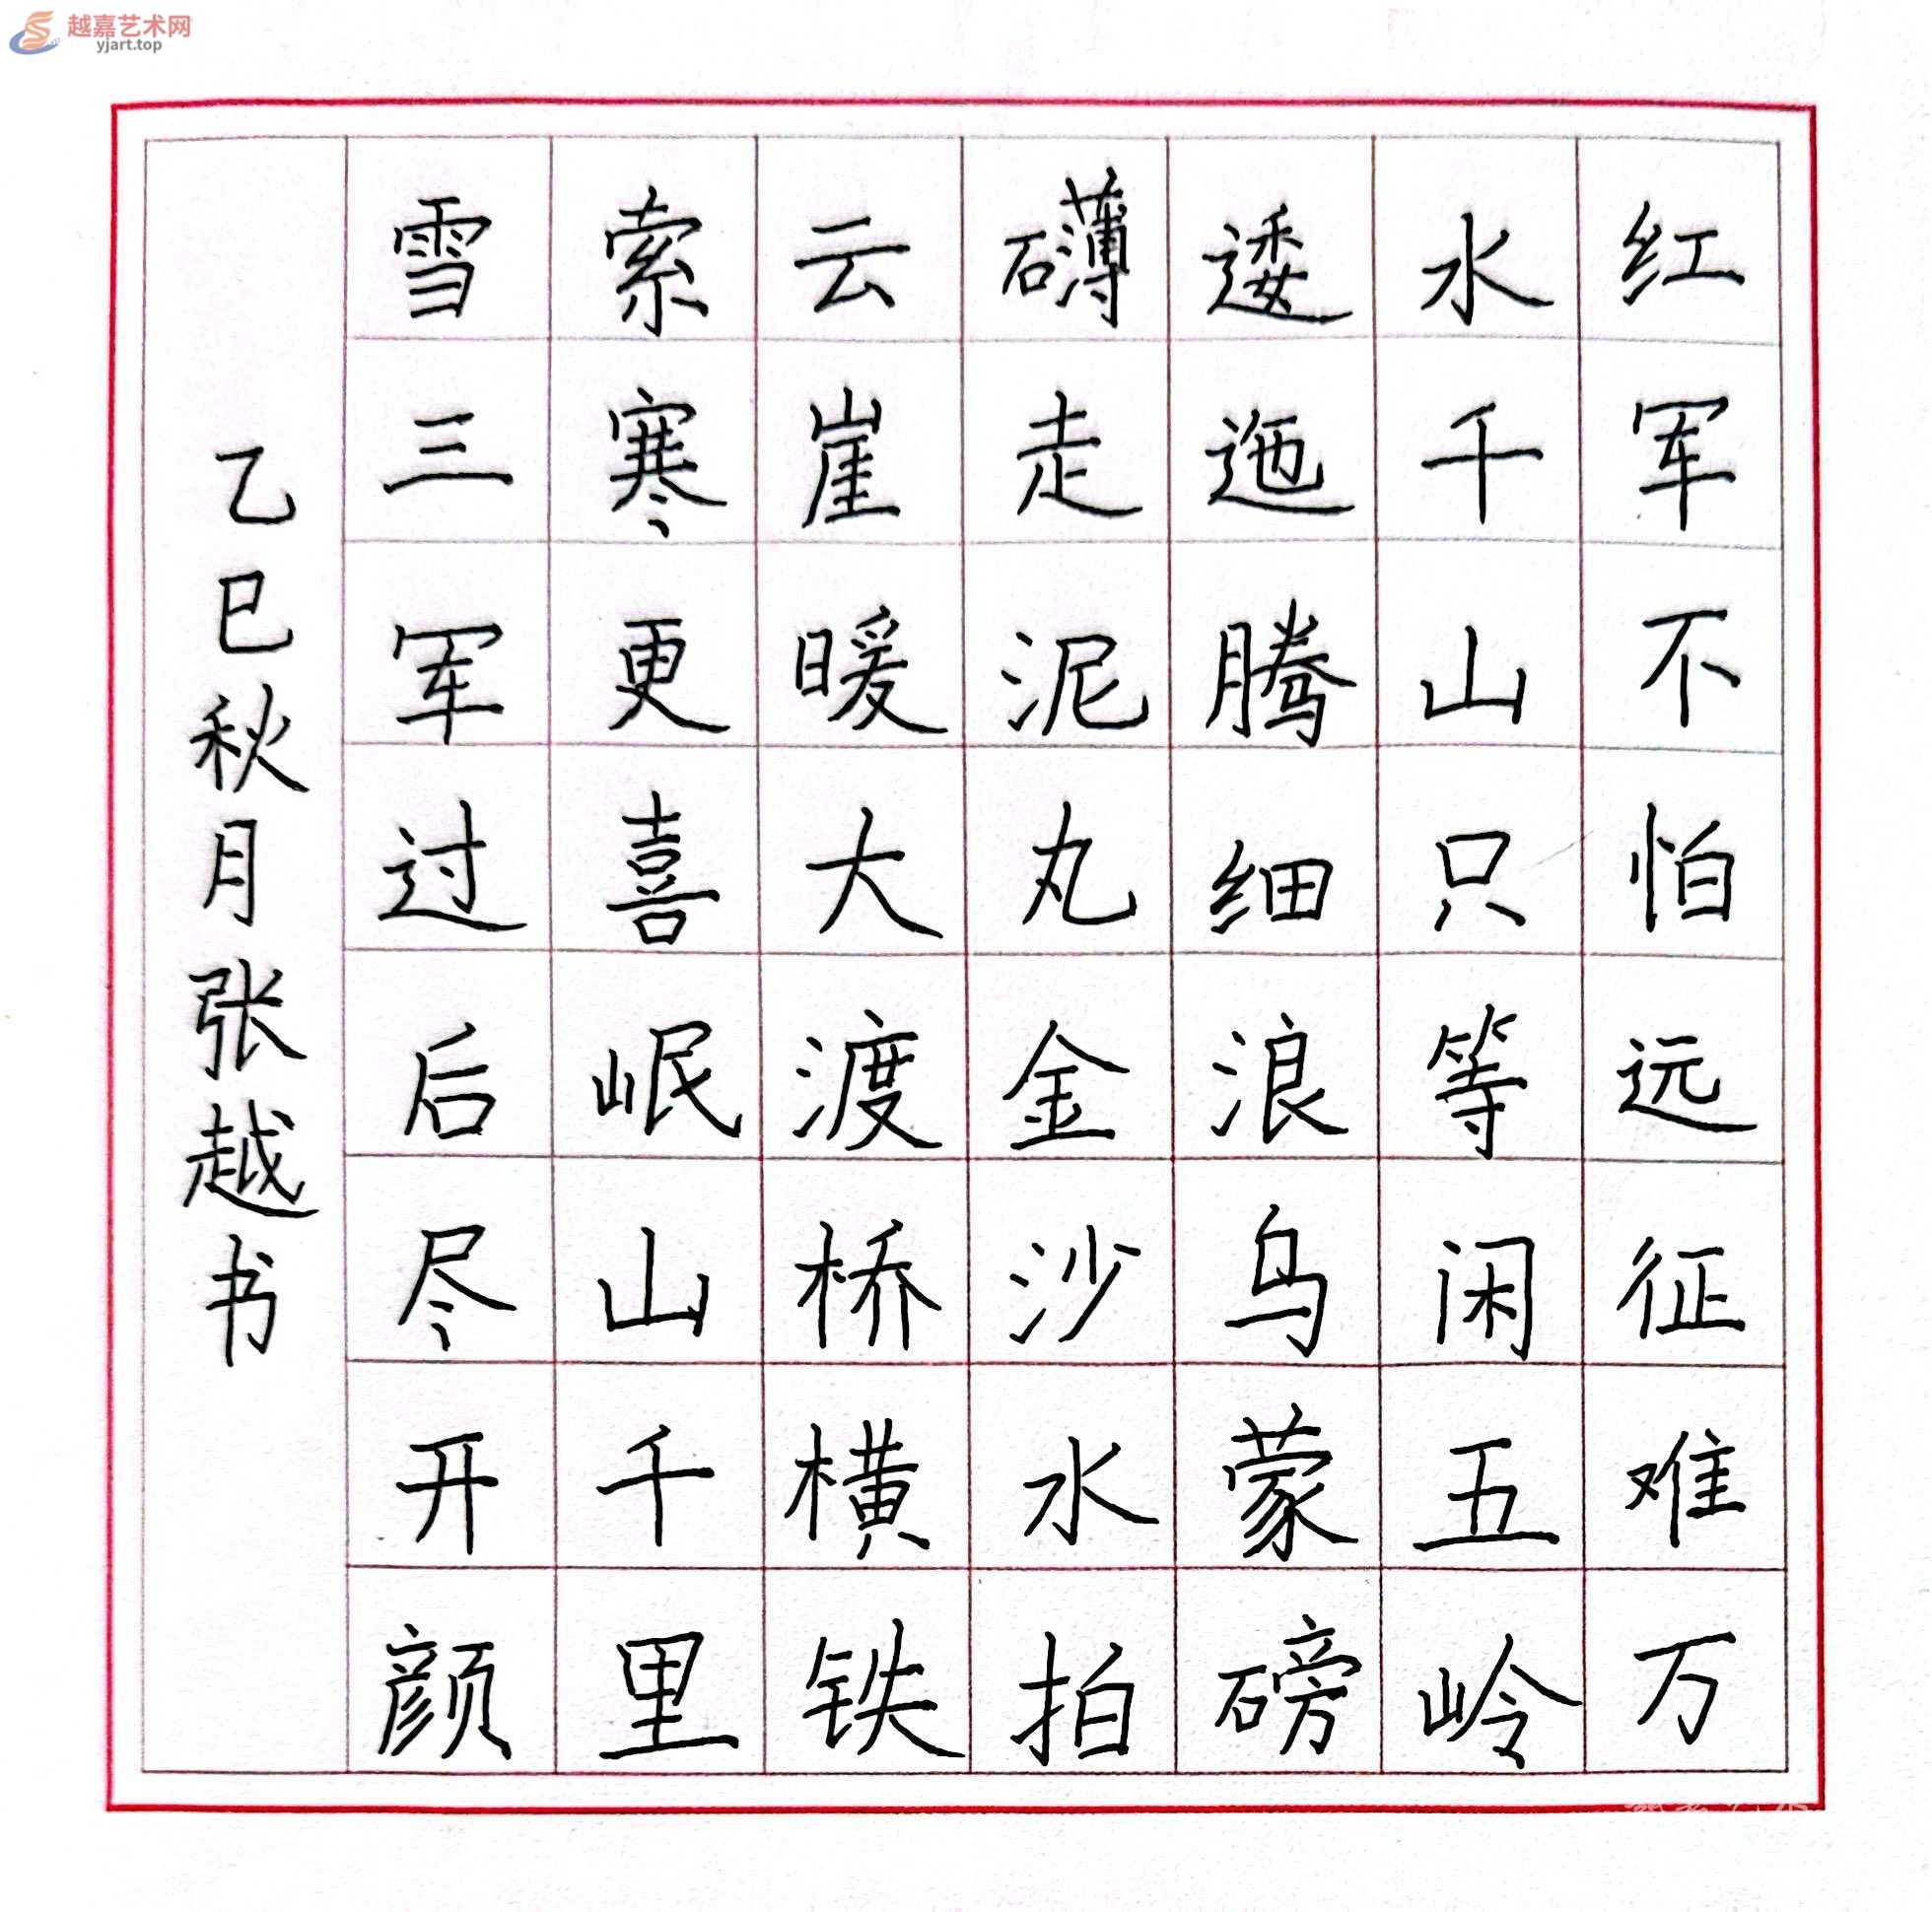 越嘉艺术网
yjart.top
红军不怕远征难万
水千山只等闲五岭
逶迤腾细浪乌蒙磅
礴走泥丸金沙水拍
云崖暖大渡桥横铁
索寒更喜岷山千里
雪三军过后尽开颜
乙巳秋月张越书